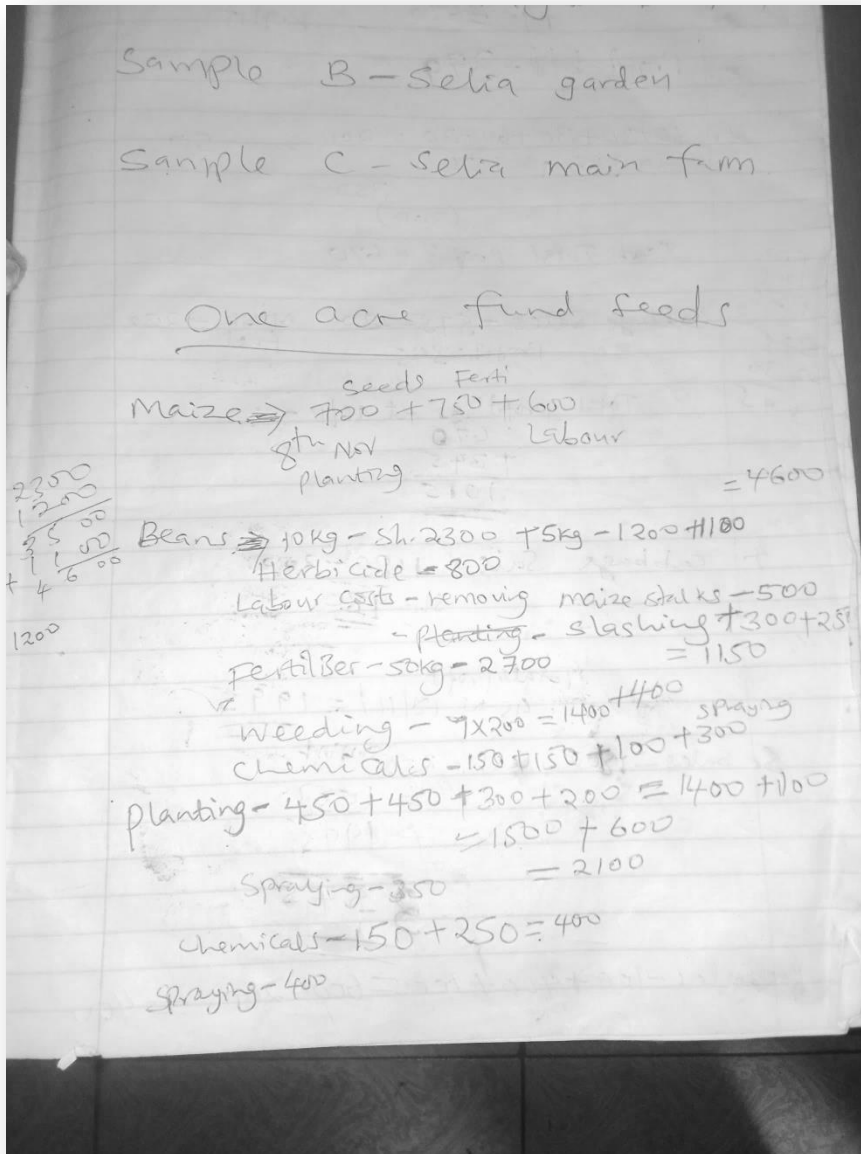 Sample B - Selia garden
Sample C - Selia main farm
One acre fund seeds
seeds Ferti
Maize ⇒ 700 + 750 + 600
8th Nov Labour
planting
= 4600
2300
1200
3500
1100
+ 4600
1200
Beans ⇒ 10kg - Sh. 2300 + 5kg - 1200 + 1100
Herbicide - 800
Labour costs - removing maize stalks - 500
- planting - slashing + 300 + 25
Fertilizer - 50kg - 2700 = 1150
Weeding - 7x200 = 1400 + 400
spraying
Chemicals - 150 + 150 + 100 + 300
Planting - 450 + 450 + 300 + 200 = 1400 + 100
= 1500 + 600
= 2100
Spraying - 350
Chemicals - 150 + 250 = 400
Spraying - 400